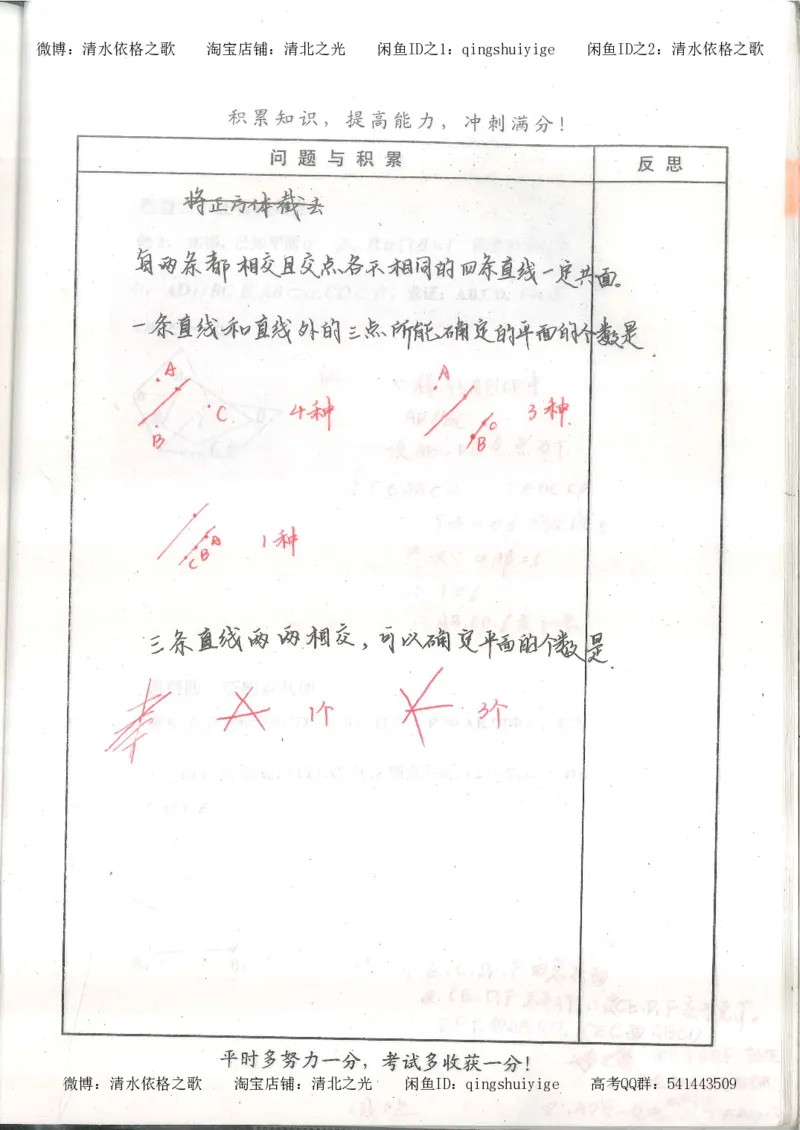 微博：清水依格之歌 淘宝店铺：清北之光 闲鱼ID之1：qingshuiyige 闲鱼ID之2：清水依格之歌
积累知识，提高能力，冲刺满分！
问题与积累 反思
将正方体截去
每两条都相交且交点各不相同的四条直线一定共面。
一条直线和直线外的三点所能确定的平面的个数是
A
B
C
4种
A
C
B
3种.
A
B
C
1种
三条直线两两相交，可以确定平面的个数是
1个
3个
平时多努力一分，考试多收获一分！
微博：清水依格之歌 淘宝店铺：清北之光 闲鱼ID：qingshuiyige 高考QQ群：541443509